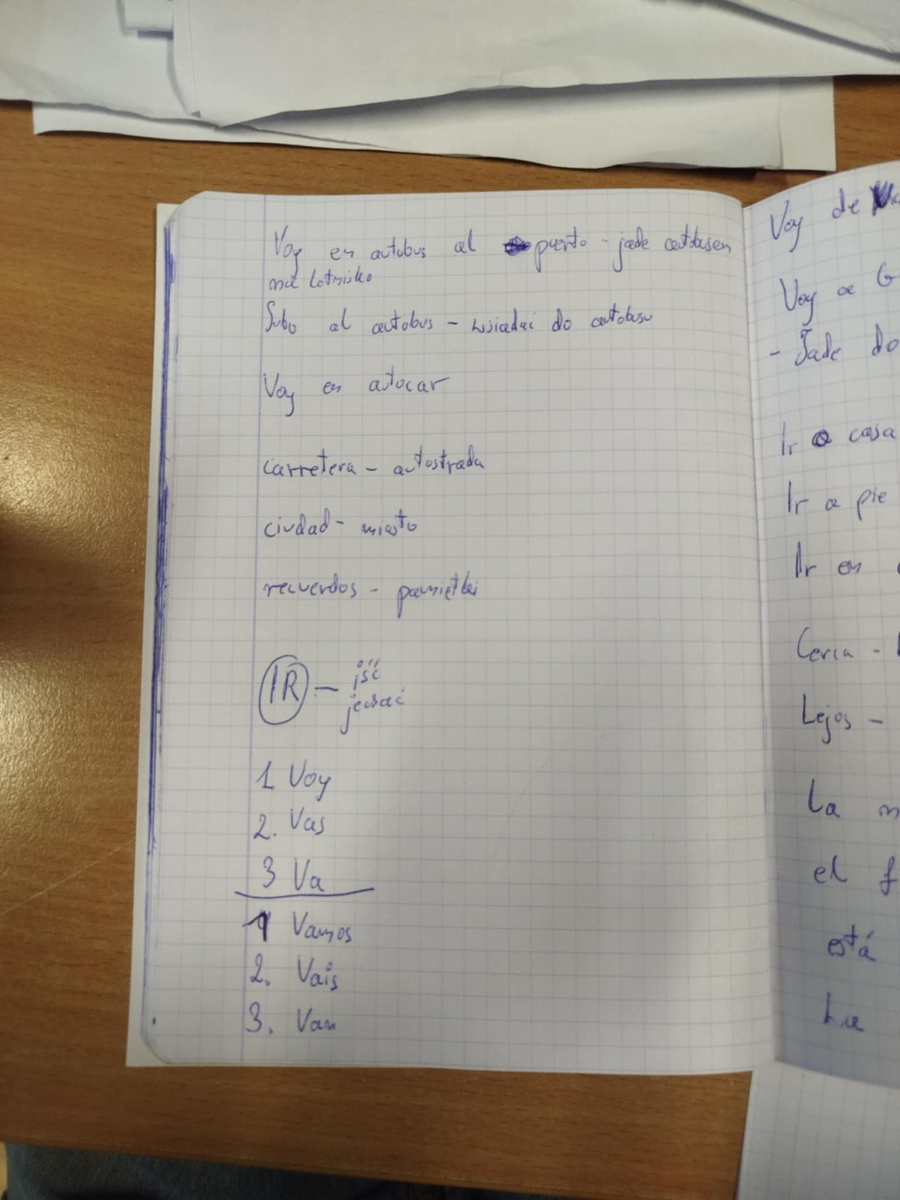 Voy en autobus al puerto - jade autobusem
na lotnisko
Subo al autobus - wsiadai do autobusu
Voy en autocar
carretera - autostrada
ciudad - miasto
recuerdos - pamiętki
IR - iść
jechać
1 Voy
2. Vas
3 Va
1 Vamos
2. Vais
3. Van
Voy de
Voy a G
- Jade do
Ir a casa
Ir a pie
Ir en
Cerca -
Lejos -
La
el f
está
La